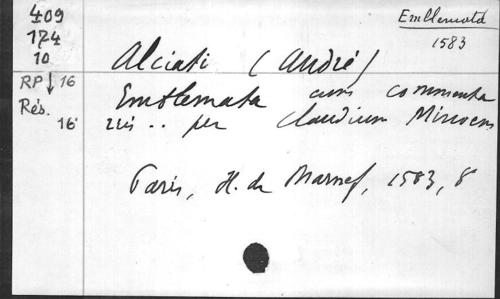 409
174
10
Emblemata
1583
Alciati (André)
RP ↓ 16
Rés.
16
Emblemata cum commenta
riis .. per Claudium Minoem
Paris, H. de Marnef, 1583, 8°